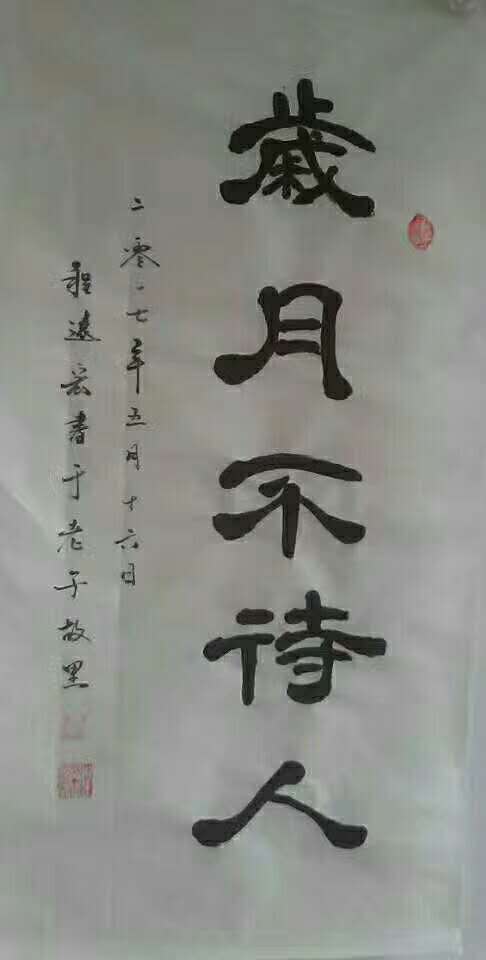 歲月不待人
二零一七年五月十六日
程遠宏書于老子故里